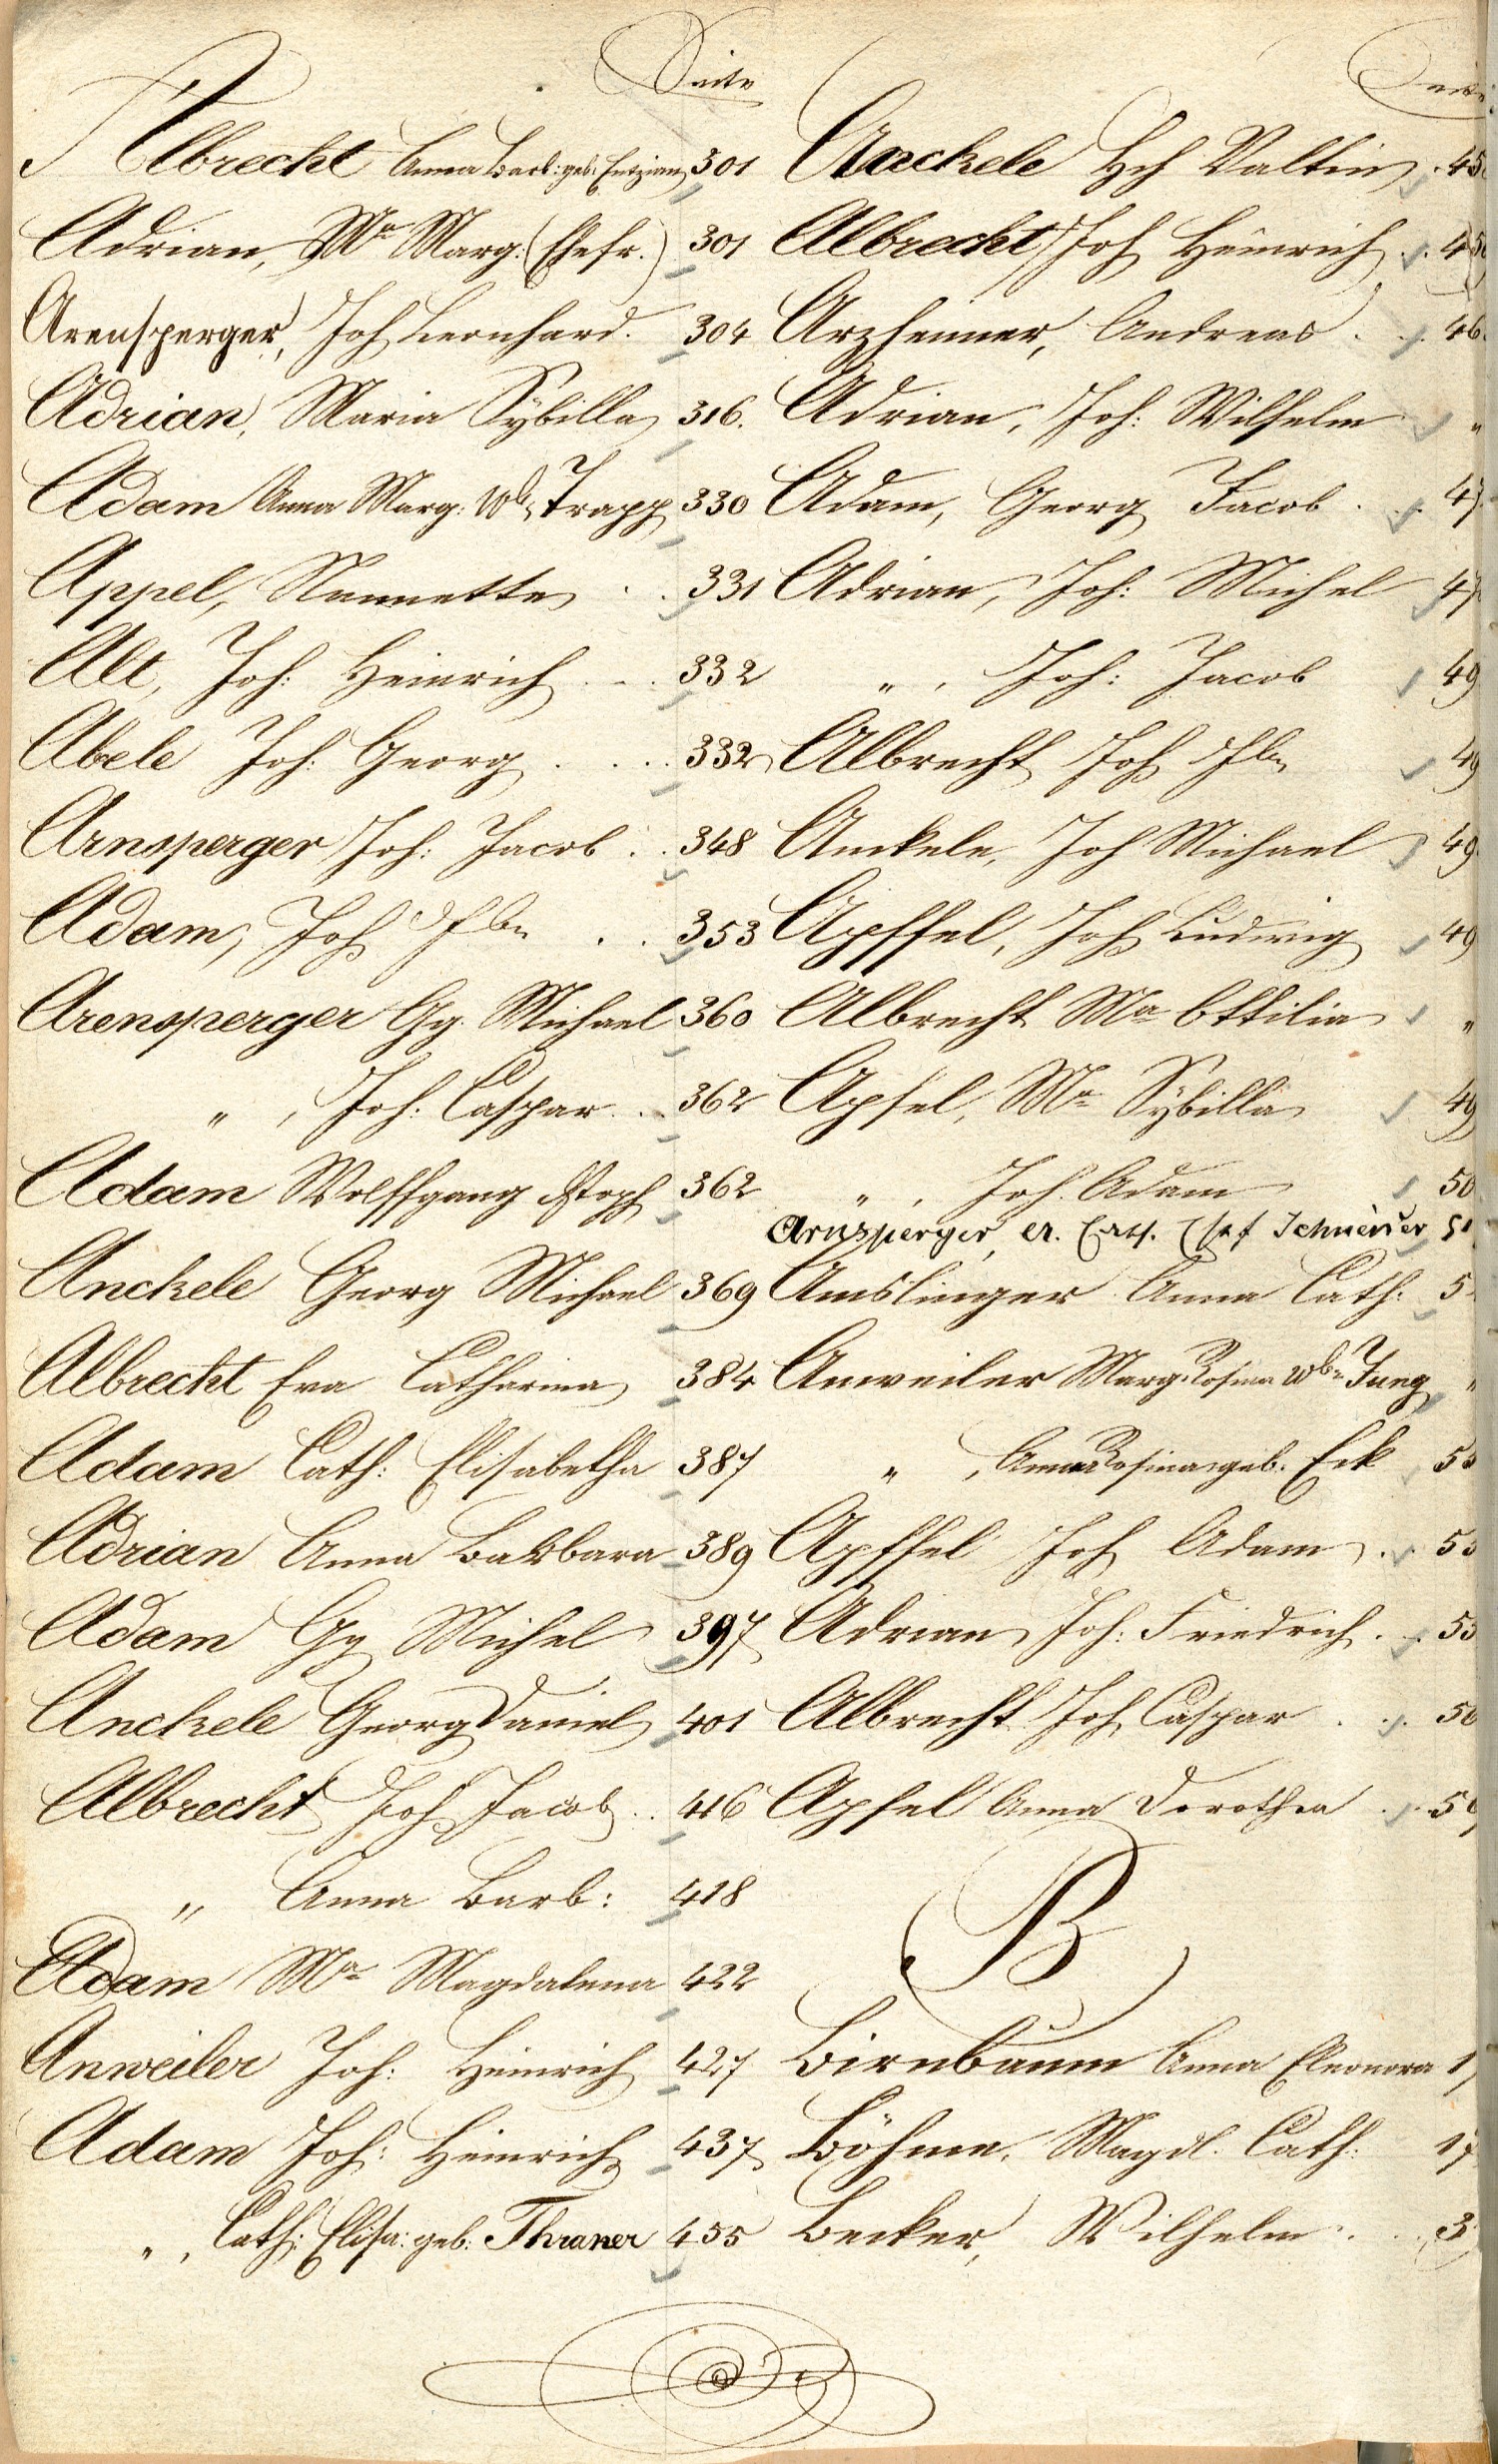 Seite
Albrecht Anna Barb: geb: Enzian 301
Adrian, Mª Marg: (Ehefr.) 301
Arensperger, Joh Leonhard. 304
Adrian, Maria Sÿbilla 316.
Adam Anna Marg: Wb. Trapp 330
Appel, Nannette . . 331
Alt, Joh: Heinrich . . . 332
Abele Joh: Georg . . . . 332
Arnsperger Joh: Jacob . . 348
Adam, Joh . . 353
Arensperger Gg. Michael 360
" , Joh: Caspar . . 362
Adam Wolffgang Xstoph 362
Anckele Georg Michael 369
Albrecht Eva Catharina 384
Adam Cath: Elisabetha 387
Adrian Anna Barbara 389
Adam Gg Michel 397
Anckele Georg Daniel 401
Albrecht Joh Jacob . . 416
" Anna Barb: 418
Adam Mª Magdalena 422
Anweiler Joh: Heinrich 427
Adam Joh: Heinrich 437
" , Cath: Elisa: geb: Thraner 455
Seite
Anckele Hch Valtin . 45
Albrecht, Joh Heinrich . . 45
Arzheimer, Andreas . . . 46
Adrian, Joh: Wilhelm "
Adam, Georg Jacob . . . 47
Adrian, Joh: Michel 47
" , Joh: Jacob 49
Albrecht Joh 49
Anckele, Joh Michael 49
Apffel, Joh Ludwig 49
Albrecht Mª Ottilia "
Apfel, Mª Sÿbilla 49
" , Joh. Adam 50
Arnsperger, Schneider 51
Amslinger Anna Cath: 5
Anweiler Marg. Rosina Wb. Jung "
" , Anna Rosina geb. Eck 53
Apffel Joh Adam . . 53
Adrian Joh: Friedrich . . 53
Albrecht Joh Caspar . . . 56
Apfel Anna Dorothea . . . 59
B
Birnbaum Anna Eleonora 1
Böhme, Magdl. Cath: 17
Becker, Wilhelm . . . 3